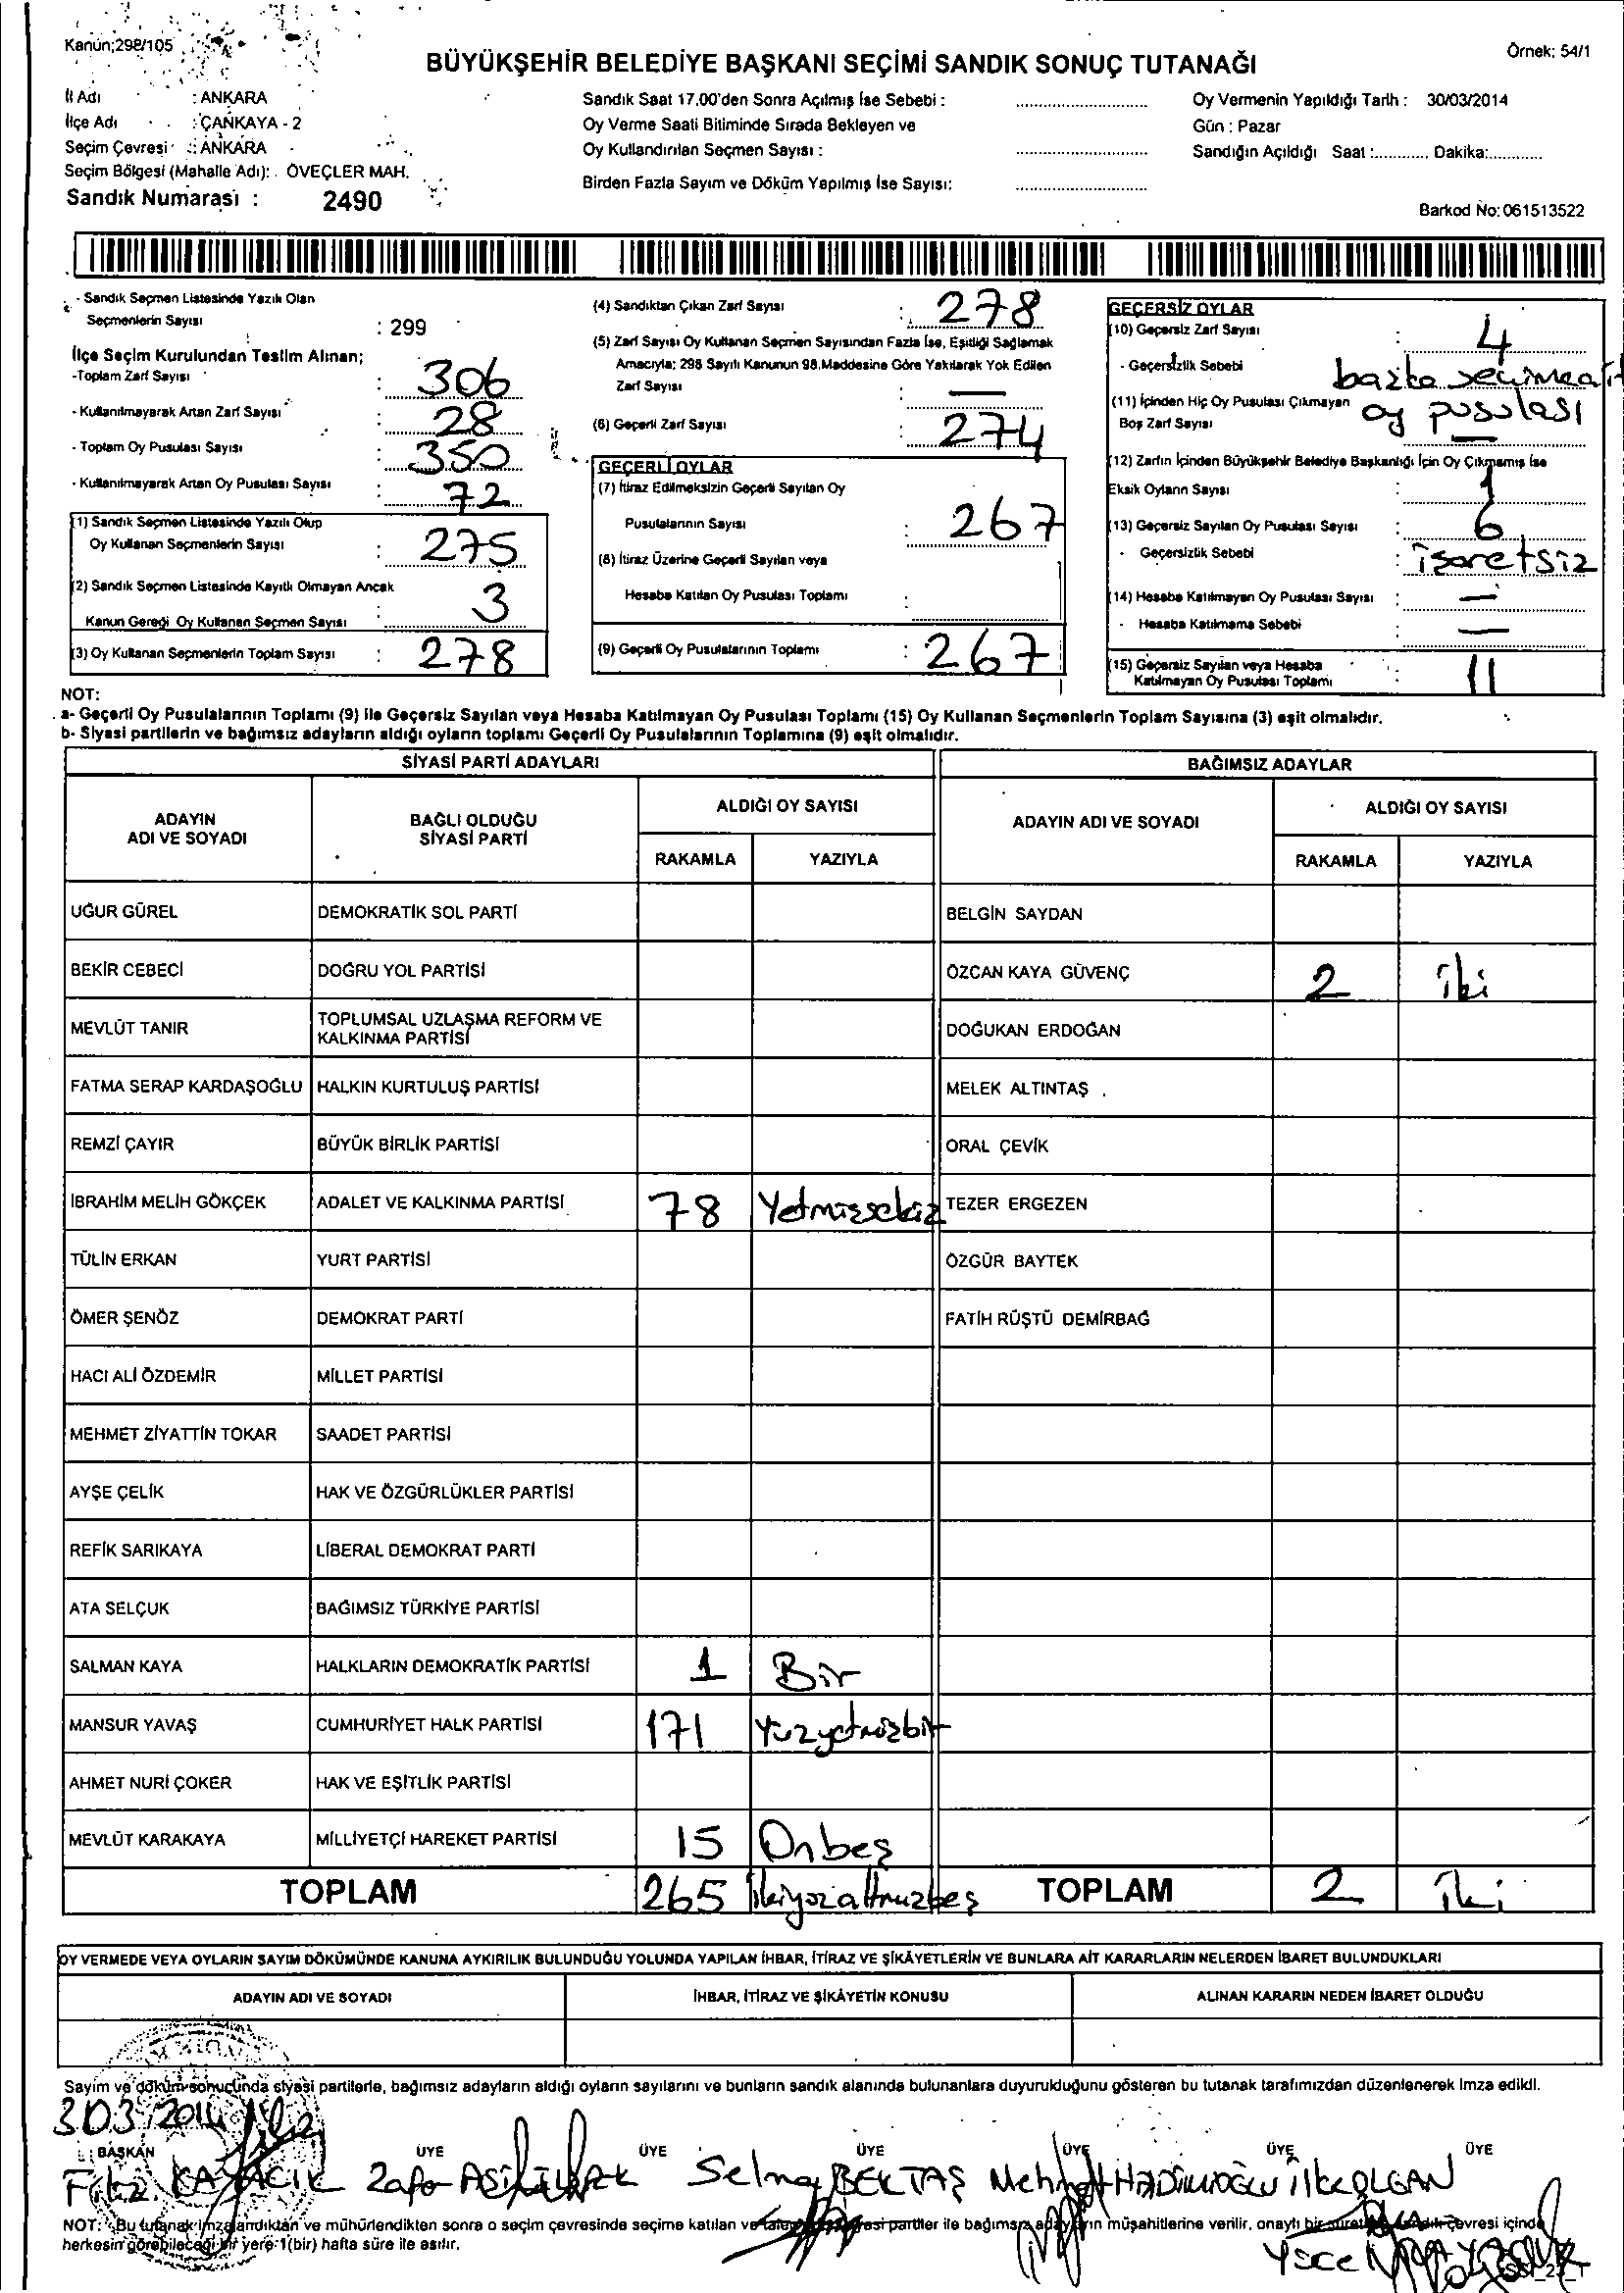 Kanun;298/105
Örnek: 54/1
BÜYÜKŞEHİR BELEDİYE BAŞKANI SEÇİMİ SANDIK SONUÇ TUTANAĞI
İl Adı : ANKARA
İlçe Adı : ÇANKAYA - 2
Seçim Çevresi : ANKARA
Seçim Bölgesi (Mahalle Adı): ÖVEÇLER MAH.
Sandık Numarası : 2490
Sandık Saat 17.00'den Sonra Açılmış İse Sebebi :
Oy Verme Saati Bitiminde Sırada Bekleyen ve
Oy Kullandırılan Seçmen Sayısı :
Birden Fazla Sayım ve Döküm Yapılmış İse Sayısı:
Oy Vermenin Yapıldığı Tarih : 30/03/2014
Gün : Pazar
Sandığın Açıldığı Saat :............ Dakika:............
Barkod No: 061513522
- Sandık Seçmen Listesinde Yazılı Olan
Seçmenlerin Sayısı : 299
İlçe Seçim Kurulundan Teslim Alınan;
-Toplam Zarf Sayısı : 306
- Kullanılmayarak Artan Zarf Sayısı : 28
- Toplam Oy Pusulası Sayısı : 350
- Kullanılmayarak Artan Oy Pusulası Sayısı : 72
(1) Sandık Seçmen Listesinde Yazılı Olup
Oy Kullanan Seçmenlerin Sayısı : 275
(2) Sandık Seçmen Listesinde Kayıtlı Olmayan Ancak
Kanun Gereği Oy Kullanan Seçmen Sayısı : 3
(3) Oy Kullanan Seçmenlerin Toplam Sayısı : 278
(4) Sandıktan Çıkan Zarf Sayısı : 278
(5) Zarf Sayısı Oy Kullanan Seçmen Sayısından Fazla İse, Eşitliği Sağlamak
Amacıyla; 298 Sayılı Kanunun 98.Maddesine Göre Yakılarak Yok Edilen
Zarf Sayısı : —
(6) Geçerli Zarf Sayısı : 274
GEÇERLİ OYLAR
(7) İtiraz Edilmeksizin Geçerli Sayılan Oy
Pusulalarının Sayısı : 267
(8) İtiraz Üzerine Geçerli Sayılan veya
Hesaba Katılan Oy Pusulası Toplamı :
(9) Geçerli Oy Pusulalarının Toplamı : 267
GEÇERSİZ OYLAR
(10) Geçersiz Zarf Sayısı : 4
- Geçersizlik Sebebi : başka seçime ait
oy pusulası
(11) İçinden Hiç Oy Pusulası Çıkmayan
Boş Zarf Sayısı —
(12) Zarfın İçinden Büyükşehir Belediye Başkanlığı İçin Oy Çıkmamış İse
Eksik Oyların Sayısı : 1
(13) Geçersiz Sayılan Oy Pusulası Sayısı : 6
- Geçersizlik Sebebi : işaretsiz
(14) Hesaba Katılmayan Oy Pusulası Sayısı : —
- Hesaba Katılmama Sebebi : —
(15) Geçersiz Sayılan veya Hesaba
Katılmayan Oy Pusulası Toplamı : 11
NOT:
a- Geçerli Oy Pusulalarının Toplamı (9) ile Geçersiz Sayılan veya Hesaba Katılmayan Oy Pusulası Toplamı (15) Oy Kullanan Seçmenlerin Toplam Sayısına (3) eşit olmalıdır.
b- Siyasi partilerin ve bağımsız adayların aldığı oyların toplamı Geçerli Oy Pusulalarının Toplamına (9) eşit olmalıdır.
SİYASİ PARTİ ADAYLARI BAĞIMSIZ ADAYLAR
ADAYIN ADI VE SOYADI BAĞLI OLDUĞU SİYASİ PARTİ ALDIĞI OY SAYISI ADAYIN ADI VE SOYADI ALDIĞI OY SAYISI
RAKAMLA YAZIYLA RAKAMLA YAZIYLA
UĞUR GÜREL DEMOKRATİK SOL PARTİ BELGİN SAYDAN
BEKİR CEBECİ DOĞRU YOL PARTİSİ ÖZCAN KAYA GÜVENÇ 2 iki
MEVLÜT TANIR TOPLUMSAL UZLAŞMA REFORM VE KALKINMA PARTİSİ DOĞUKAN ERDOĞAN
FATMA SERAP KARDAŞOĞLU HALKIN KURTULUŞ PARTİSİ MELEK ALTINTAŞ
REMZİ ÇAYIR BÜYÜK BİRLİK PARTİSİ ORAL ÇEVİK
İBRAHİM MELİH GÖKÇEK ADALET VE KALKINMA PARTİSİ 78 Yetmişsekiz TEZER ERGEZEN
TÜLİN ERKAN YURT PARTİSİ ÖZGÜR BAYTEK
ÖMER ŞENÖZ DEMOKRAT PARTİ FATİH RÜŞTÜ DEMİRBAĞ
HACI ALİ ÖZDEMİR MİLLET PARTİSİ
MEHMET ZİYATTİN TOKAR SAADET PARTİSİ
AYŞE ÇELİK HAK VE ÖZGÜRLÜKLER PARTİSİ
REFİK SARIKAYA LİBERAL DEMOKRAT PARTİ
ATA SELÇUK BAĞIMSIZ TÜRKİYE PARTİSİ
SALMAN KAYA HALKLARIN DEMOKRATİK PARTİSİ 1 Bir
MANSUR YAVAŞ CUMHURİYET HALK PARTİSİ 171 Yüzyetmişbir
AHMET NURİ ÇOKER HAK VE EŞİTLİK PARTİSİ
MEVLÜT KARAKAYA MİLLİYETÇİ HAREKET PARTİSİ 15 Onbeş
TOPLAM 265 ikiyüzaltmışbeş TOPLAM 2 iki
OY VERMEDE VEYA OYLARIN SAYIM DÖKÜMÜNDE KANUNA AYKIRILIK BULUNDUĞU YOLUNDA YAPILAN İHBAR, İTİRAZ VE ŞİKÂYETLERİN VE BUNLARA AİT KARARLARIN NELERDEN İBARET BULUNDUKLARI
ADAYIN ADI VE SOYADI İHBAR, İTİRAZ VE ŞİKÂYETİN KONUSU ALINAN KARARIN NEDEN İBARET OLDUĞU
Sayım ve döküm sonucunda siyasi partilerle, bağımsız adayların aldığı oyların sayılarını ve bunların sandık alanında bulunanlara duyurulduğunu gösteren bu tutanak tarafımızdan düzenlenerek imza edildi.
BAŞKAN ÜYE ÜYE ÜYE ÜYE ÜYE ÜYE
Selma BEKTAŞ Mehmet
NOT: Bu tutanak imzalandıktan ve mühürlendikten sonra o seçim çevresinde seçime katılan ve siyasi partiler ile bağımsız adayların müşahitlerine verilir, onaylı bir çevresi içinde
herkesin görebileceği bir yere 1(bir) hafta süre ile asılır.